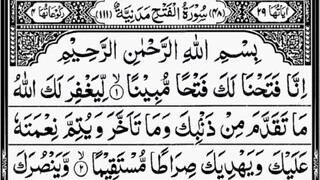 اٰیَاتُهَا ٢٩ (٤٨) سُوْرَةُ الْفَتْحِ مَدَنِيَّةٌ (١١١) رُكُوْعَاتُهَا ٤
بِسْمِ اللهِ الرَّحْمٰنِ الرَّحِيْمِ
اِنَّا فَتَحْنَا لَكَ فَتْحًا مُّبِيْنًا ۙ﴿١﴾ لِّيَغْفِرَ لَكَ اللهُ
مَا تَقَدَّمَ مِنْ ذَنْۢبِكَ وَمَا تَاَخَّرَ وَيُتِمَّ نِعْمَتَهٗ
عَلَيْكَ وَيَهْدِيَكَ صِرَاطًا مُّسْتَقِيْمًا ۙ﴿٢﴾ وَّيَنْصُرَكَ